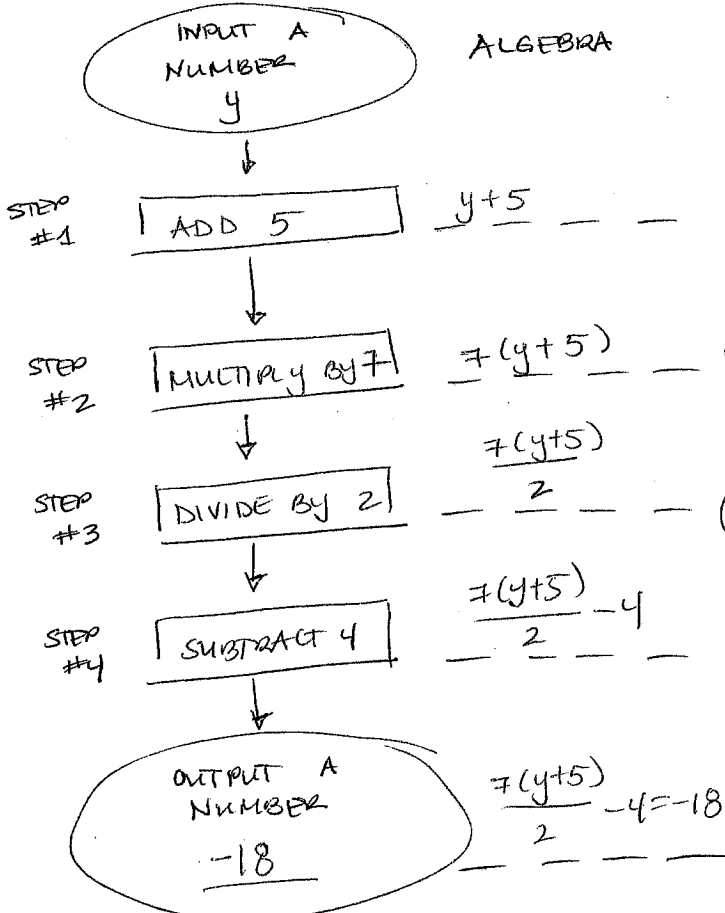 INPUT A
NUMBER
y
ALGEBRA
STEP
#1
ADD 5
y+5
STEP
#2
MULTIPLY BY 7
7(y+5)
STEP
#3
DIVIDE BY 2
7(y+5)
2
(
STEP
#4
SUBTRACT 4
7(y+5)
2
-4
OUTPUT A
NUMBER
-18
7(y+5)
2
-4=-18